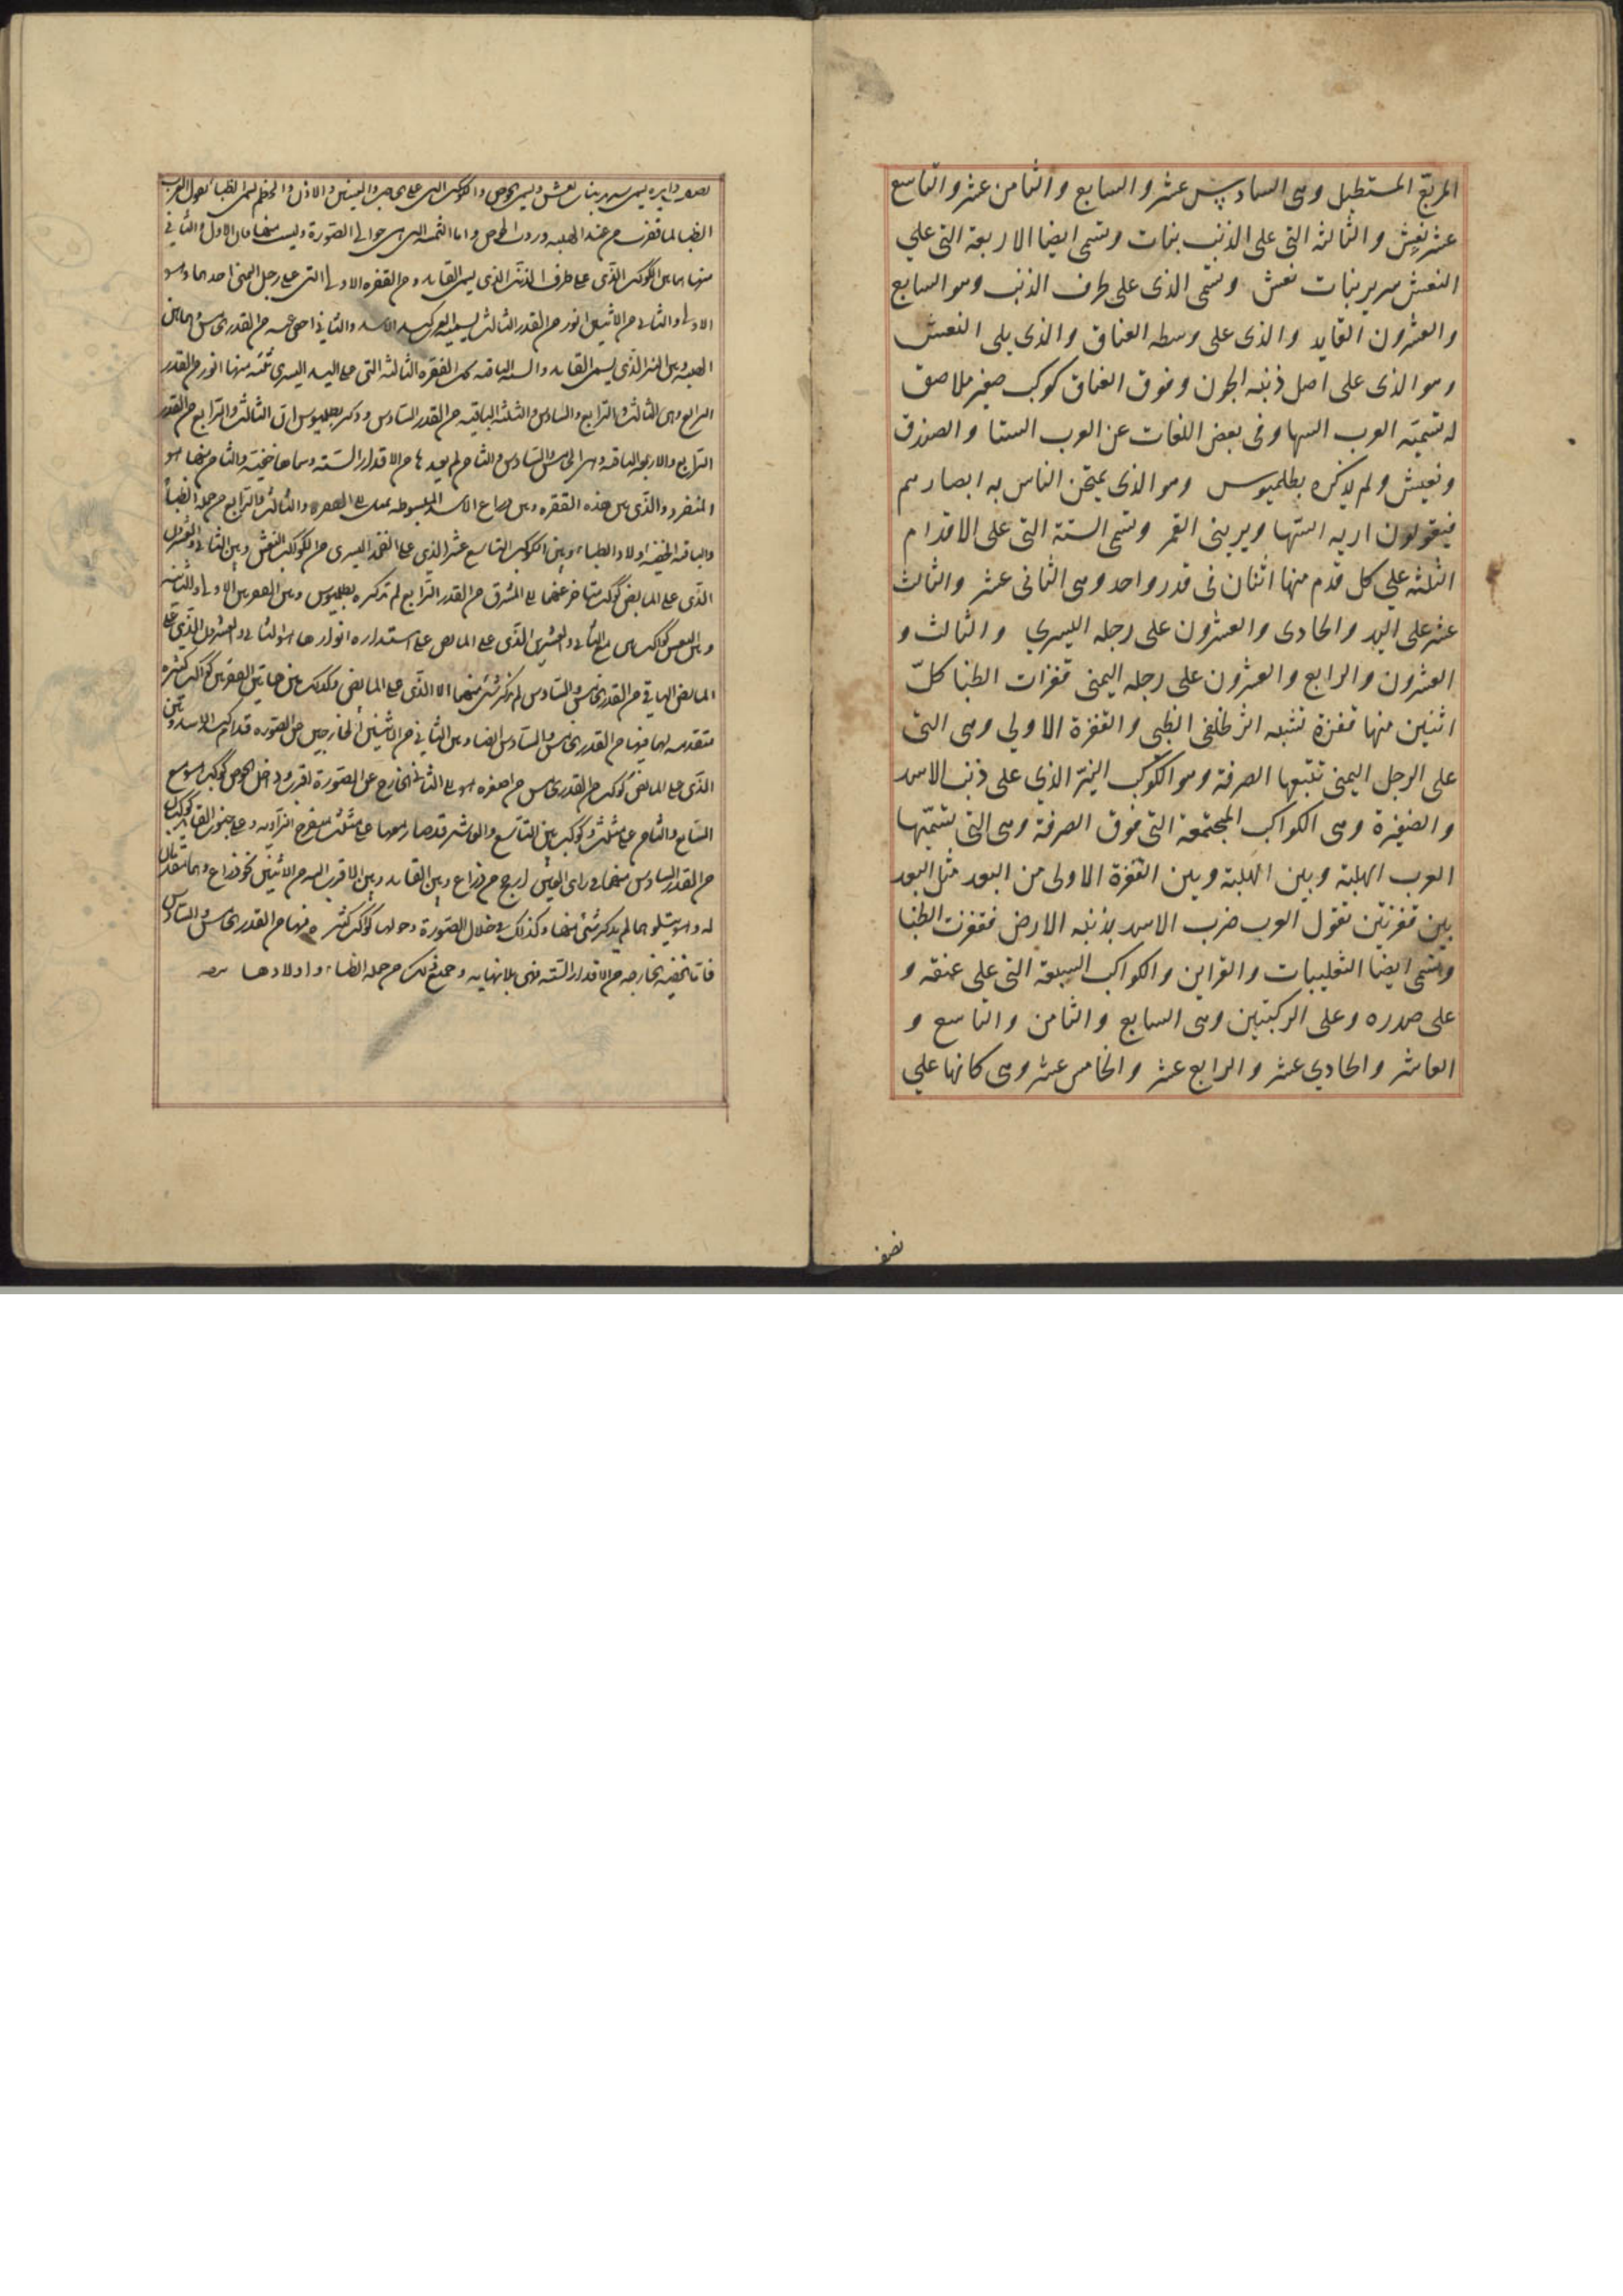 المربع المستطيل وهى السادس عشر والسابع والثامن عشر والتاسع
عشر نعش والثلثه التى على الذنب بنات وتسمى ايضا الاربعة التى علي
النعش سرير بنات نعش وتسمى الذى على طرف الذنب وهو السابع
والعشرون القايد والذى على وسطه العناق والذى يلى النعش
وهو الذى على اصل ذنبه الجون وفوق العناق كوكب صغير ملاصق
له تسميه العرب السها وفى بعض اللغات عن العرب الستا والصيدق
ونعيش ولم يذكره بطلميوس وهو الذى يمتحن الناس به ابصارهم
فيقولون اريه السها ويرينى القمر وتسمى الستة التى على الاقدام
الثلثه علي كل قدم منها اثنان فى قدر واحد وهى الثانى عشر والثالث
عشر على اليد والحادى والعشرون على رجله اليسري والثالث و
العشرون والرابع والعشرون على رجله اليمنى قفزات الظبا كلّ
اثنين منها قفزة تشبه اثر ظلفى الظبى والقفزة الاولي وهى التى
على الرجل اليمنى تتبعها الصرفة وهو الكوكب النيّر الذي على ذنب الاسد
والضفيرة وهى الكواكب المجتمعة التى فوق الصرفة وهى التى تسمّيها
العرب الهلبة وبين الهلبة وبين القفزة الاولى من البعد مثل البعد
بين قفزتين تقول العرب ضرب الاسد بذنبه الارض فقفزت الظبا
وتسمى ايضا الثعليبات والقراين والكواكب السبعة التى على عنقه و
على صدره وعلى الركبتين وهى السابع والثامن والتاسع و
العاشر والحادي عشر والرابع عشر والخامس عشر وهى كانها علي
نصف
دايره يسمى سرير بنات نعش ويسمى الحوض والكواكب التى على الحاجب والعينين والاذن والخطم يسمى الظبا تقول العرب
الظبا لما قفزت من عند الهلبه وردت الحوض واما الثمنيه التى هى حوالى الصورة وليست منها فان الاول والثانى
منهما ما بين الكوكب الذى على طرف الذنب الذى يسمى القايد ومن القفزه الاولى التى على رجل اليمنى احدهما وهو
الاول والثانى من الاثنين انور من القدر الثالث يسميه العرب كبد الاسد والثانى
الهلبه وبين النير الذى يسمى القايد والستة الباقيه تحت القفزه الثالثه التى على اليد اليسرى ثلثه منها انور من القدر
الرابع وهى الثالث والرابع والسادس والثلثه الباقيه من القدر السادس وذكر بطلميوس ان الثالث والرابع من القدر
الرابع والاربعه الباقيه وهى الخامس والسادس والثامن لم يعدها من الاقدار الستة وسماها خفية والثامن منها هو
المنفرد والذى بين هذه القفزه وبين ذراع الاسد المبسوطه والثالث والرابع من جملة الظبا
والباقيه الخفيه اولاد الظبا وبين الكوكب التاسع عشر الذي على الفخذ اليسرى من كواكب النعش وبين الثانى والعشرين
الذى على المابض كوكب متاخر عنهما الى المشرق من القدر الرابع لم يذكره بطلميوس
المابض الباقى من القدر الخامس والسادس لم يذكر شئ منها الا الذى على المابض وكذلك بين هاتين القفزتين كواكب كثيره
متقدمه لهما فيهما من القدر الخامس والسادس ايضا وبين الثانى من الاثنين الخارجين عن الصوره قدام كبد الاسد وبين
الذى على المابض كوكب من القدر الخامس من اصغره هو الى الثانى الخارج عن الصورة اقرب وداخل الحوض كوكب هو مع
السابع والثامن على مثلث وكوكب بين التاسع والعاشر قد صار معهما على مثلث منفرج الزاويه وعلى جنوب القايد كوكبان
من القدر السادس بينهما في راى العين ارجح من ذراع وبين القايد وبين الاقرب اليه من الاثنين نحو ذراع وهما متقدمان
له وهو يتلوهما لم يذكر شئ منها وكذلك فى خلال الصورة وحولها كواكب كثيره منها من القدر الخامس والسادس
فاما الخفيه الخارجه من الاقدار الستة فهى بلا نهايه وجميع ذلك من جملة الظباء واولادها